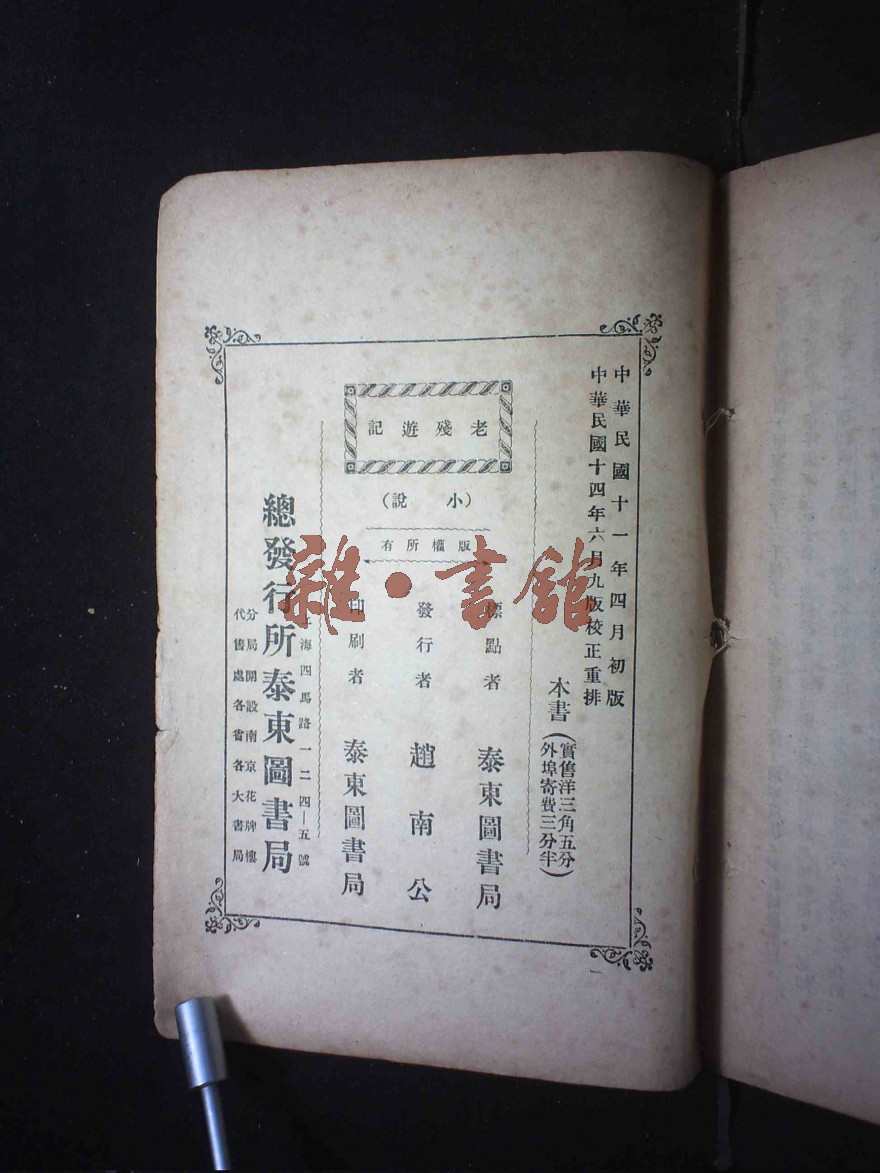 中華民國十一年四月初版
中華民國十四年六月九版校正重排
本書
(實售洋三角五分
外埠寄費三分半)
老殘遊記
(小說)
版權所有
標點者 泰東圖書局
發行者 趙南公
印刷者 泰東圖書局
海四馬路一二四—五號
總發行所泰東圖書局
分局開設南京花牌樓
代售處各省各大書局
一
雜·書館